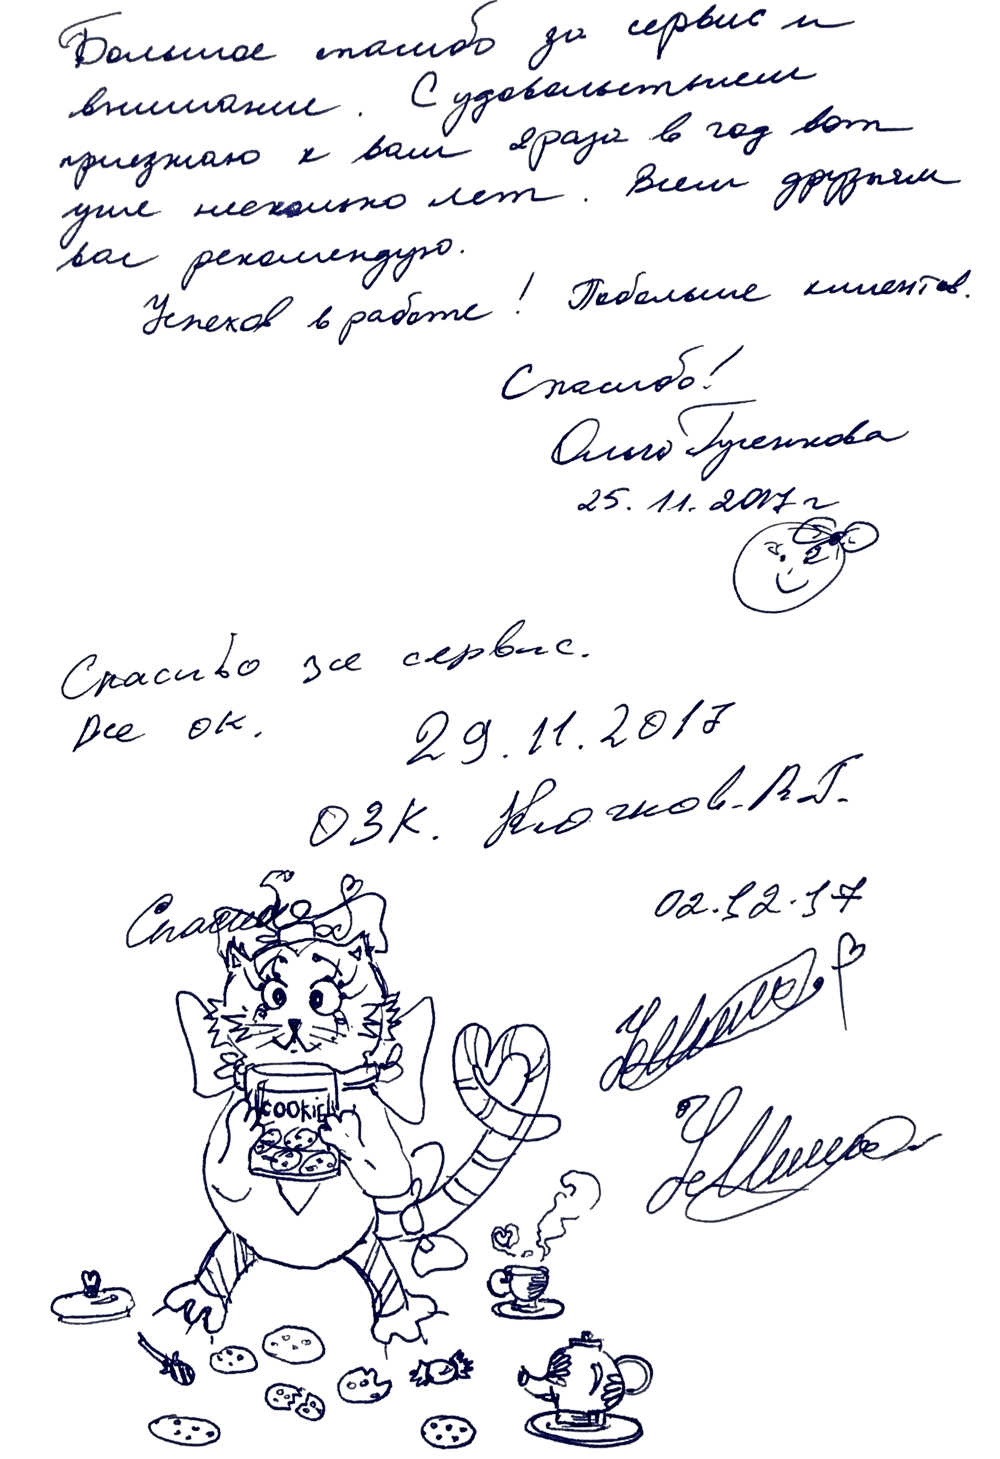 Большое спасибо за сервис и
внимание. С удовольствием
приезжаю к вам 2 раза в год вот
уже несколько лет. Всем друзьям
вас рекомендую.
Успехов в работе! Побольше клиентов.
Спасибо!
Ольга Гусенкова
25.11.2017г
Спасибо за сервис.
Все ок.
29.11.2017
ОЗК. Клочков.В.Г.
Спасибо
02.12.17
COOKIE